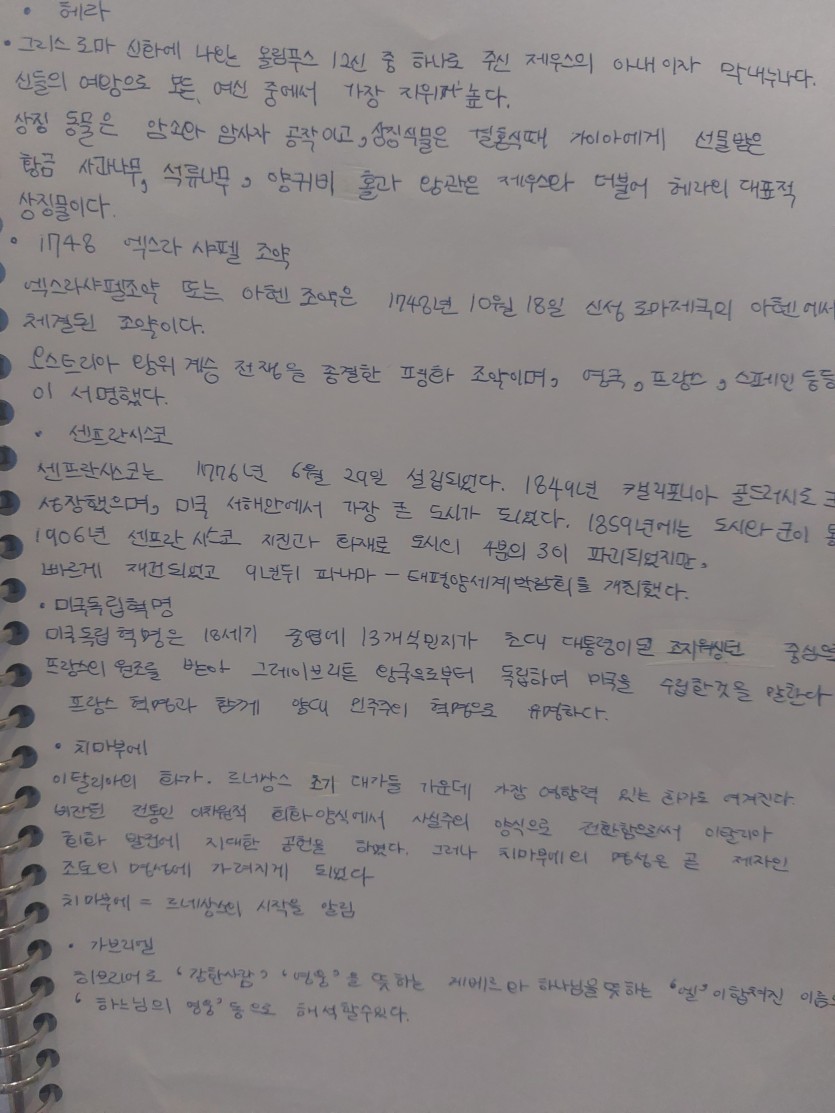 • 헤라
• 그리스 로마 신화에 나오는 올림푸스 12신 중 하나로 주신 제우스의 아내이자 막내누나다.
신들의 여왕으로 모든 여신 중에서 가장 지위가 높다.
상징 동물은 암소와 암사자 공작이고, 상징식물은 결혼식때 가이아에게 선물받은
황금 사과나무, 석류나무, 양귀비 홀과 왕관은 제우스와 더불어 헤라의 대표적
상징물이다.
• 1748 엑스라 샤펠 조약
엑스라샤펠조약 또는 아헨 조약은 1748년 10월 18일 신성 로마제국의 아헨에서
체결된 조약이다.
오스트리아 왕위 계승 전쟁을 종결한 평화 조약이며, 영국, 프랑스, 스페인 등등
이 서명했다.
• 센프란시스코
센프란시스코는 1776년 6월 29일 설립되었다. 1849년 캘리포니아 골드러시로
성장했으며, 미국 서해안에서 가장 큰 도시가 되었다. 1859년에는 도시와 군이
1906년 센프란시스코 지진과 화재로 도시의 4분의 3이 파괴되었지만,
빠르게 재건되었고 9년뒤 파나마 - 태평양세계박람회를 개최했다.
• 미국독립혁명
미국독립혁명은 18세기 중엽에 13개식민지가 초대 대통령이 된 조지워싱턴
프랑스의 원조를 받아 그레이브리튼 왕국으로부터 독립하여 미국을 수립한것을 말한다
프랑스 혁명과 함께 양대 민주주의 혁명으로 유명하다.
• 치마부에
이탈리아의 화가. 르네상스 초기 대가들 가운데 가장 영향력 있는 화가로 여겨진다.
비잔틴 전통인 이차원적 회화양식에서 사실주의 양식으로 전환함으로써 이탈리아
회화 발전에 지대한 공헌을 하였다. 그러나 치마부에의 명성은 곧 제자인
조토의 명성에 가려지게 되었다
치마부에 = 르네상스의 시작을 알림
• 가브리엘
히브리어로 '강한사람' '영웅'을 뜻하는 게베르와 하나님을 뜻하는 '엘'이 합쳐진 이름
'하느님의 영웅' 등으로 해석할수있다.